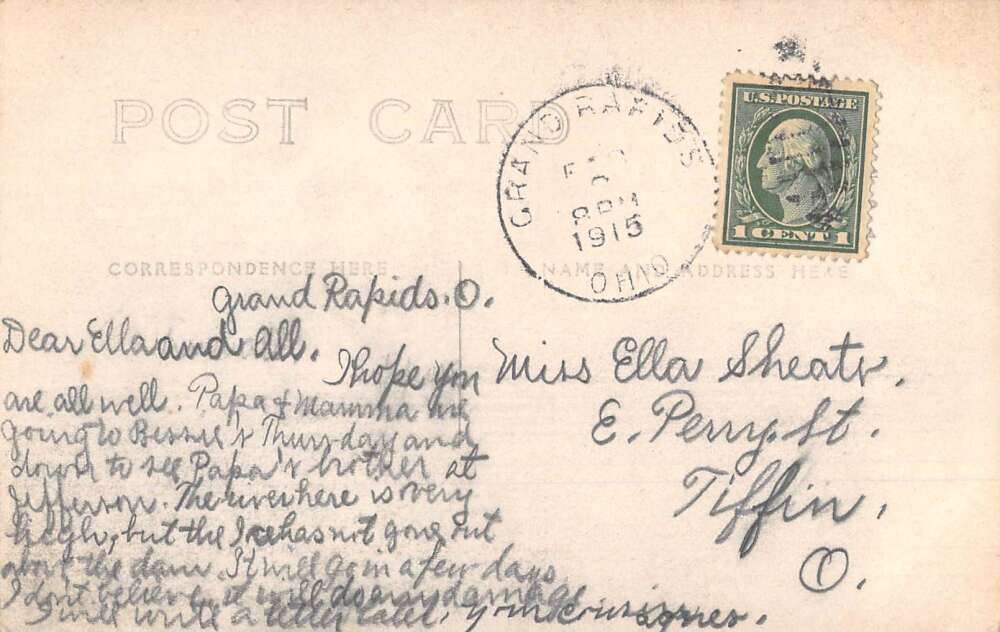 POST CARD
GRAND RAPIDS
FEB
8 PM
1915
OHIO
U.S. POSTAGE
1 CENT 1
CORRESPONDENCE HERE
NAME AND ADDRESS HERE
Grand Rapids. O.
Dear Ella and All.
I hope you
are all well. Papa & Mamma are
going to Bessie's Thursday and
down to see Papa's brother at
Jefferson. The river here is very
high, but the Ice has not gone out
about the dam. It will go in a few days
I don't believe it will do any damage
I will write a letter later, Your Cousin
Miss Ella Sheats.
E. Perry. St.
Tiffin,
O.